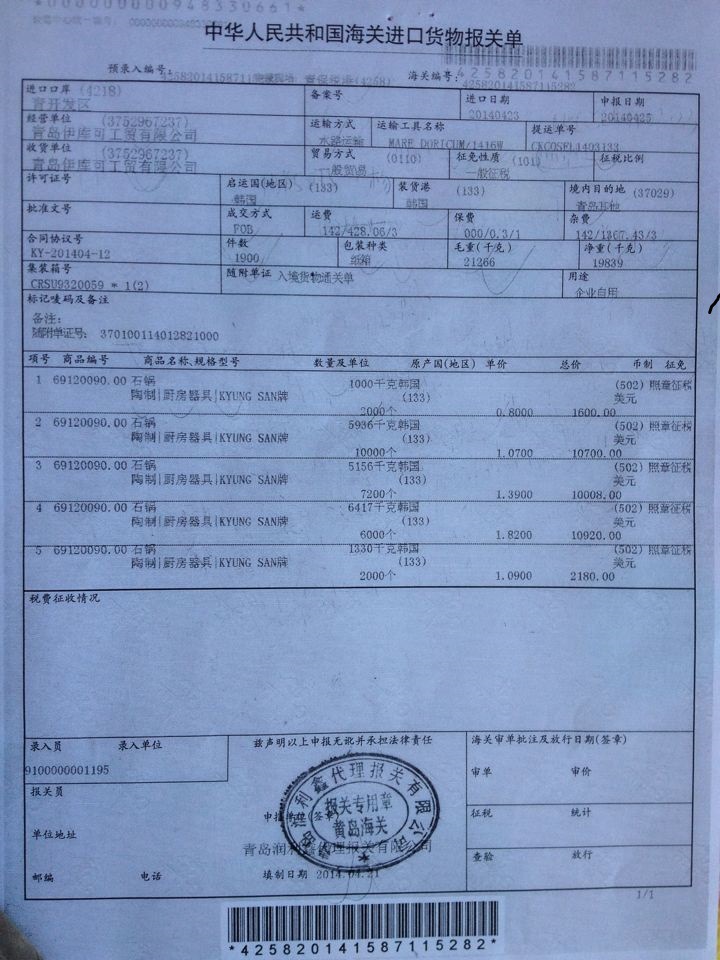 中华人民共和国海关进口货物报关单
预录入编号: 海关编号: 425820141587115282
425820141587115282
进口口岸 (4218) 备案号 进口日期 申报日期
青开发区 20140423 20140425
经营单位 (3752967237) 运输方式 运输工具名称 提运单号
青岛伊库可工贸有限公司 水路运输 MARE DORICUM/1416W CKCOSEL1403133
收货单位 (3752967237) 贸易方式 (0110) 征免性质 (101) 征税比例
青岛伊库可工贸有限公司 一般贸易 一般征税
许可证号 启运国(地区) (133) 装货港 (133) 境内目的地 (37029)
韩国 韩国 青岛其他
批准文号 成交方式 运费 保费 杂费
FOB 142/428.06/3 000/0.3/1 142/1367.43/3
合同协议号 件数 包装种类 毛重(千克) 净重(千克)
KY-201404-12 1900 纸箱 21266 19839
集装箱号 随附单证 入境货物通关单 用途
CRSU9320059 * 1(2) 企业自用
标记唛码及备注
备注:
随附单证号: 370100114012821000
项号 商品编号 商品名称、规格型号 数量及单位 原产国(地区) 单价 总价 币制 征免
1 69120090.00 石锅 1000千克韩国 (502) 照章征税
陶制|厨房器具|KYUNG SAN牌 (133) 美元
2000个 0.8000 1600.00
2 69120090.00 石锅 5936千克韩国 (502) 照章征税
陶制|厨房器具|KYUNG SAN牌 (133) 美元
10000个 1.0700 10700.00
3 69120090.00 石锅 5156千克韩国 (502) 照章征税
陶制|厨房器具|KYUNG SAN牌 (133) 美元
7200个 1.3900 10008.00
4 69120090.00 石锅 6417千克韩国 (502) 照章征税
陶制|厨房器具|KYUNG SAN牌 (133) 美元
6000个 1.8200 10920.00
5 69120090.00 石锅 1330千克韩国 (502) 照章征税
陶制|厨房器具|KYUNG SAN牌 (133) 美元
2000个 1.0900 2180.00
税费征收情况
录入员 录入单位 兹声明以上申报无讹并承担法律责任 海关审单批注及放行日期(签章)
9100000001195 审单 审价
报关员
利鑫代理报关有限公司
报关专用章
黄岛海关
申报单位(签章) 征税 统计
单位地址
青岛润利鑫代理报关有限公司 查验 放行
邮编 电话 填制日期 2014.04.21
1/1
*425820141587115282*